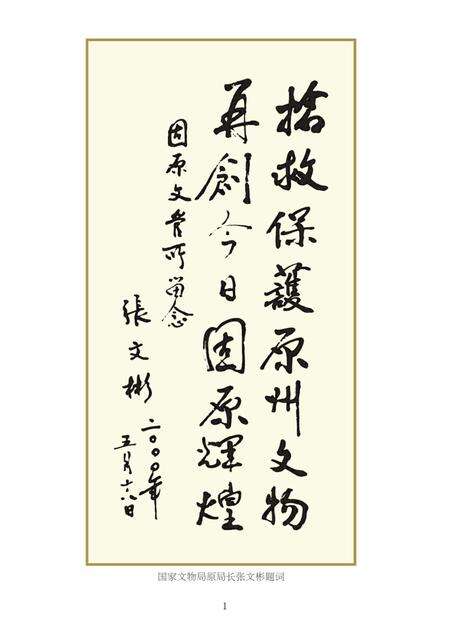 搶救保護原州文物
再創今日固原輝煌
固原文管所留念
張文彬
二〇〇〇年
五月十六日
国家文物局原局长张文彬题词
1